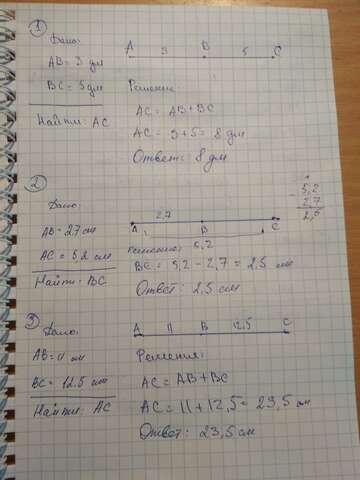 1
Дано:
A B C
3 5
AB = 3 дм
BC = 5 дм
Найти: AC
Решение:
AC = AB + BC
AC = 3 + 5 = 8 дм
Ответ: 8 дм
2
Дано:
2,7
A B C
5,2
5,2
2,7
2,5
AB = 2,7 см
AC = 5,2 см
Найти: BC
Решение:
BC = 5,2 - 2,7 = 2,5 см
Ответ: 2,5 см
3
Дано:
A 11 B 12,5 C
AB = 11 см
BC = 12,5 см
Найти: AC
Решения:
AC = AB + BC
AC = 11 + 12,5 = 23,5 см
Ответ: 23,5 см